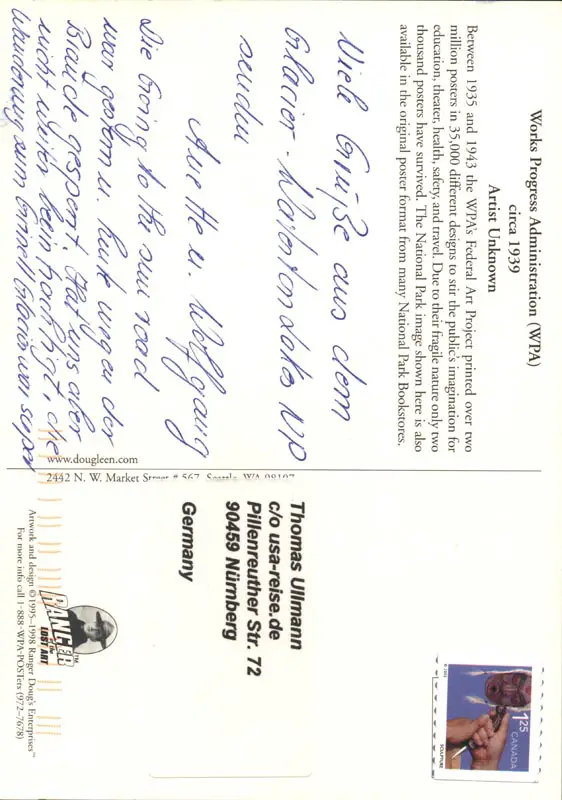 Works Progress Administration (WPA)
circa 1939
Artist Unknown
Between 1935 and 1943 the WPA's Federal Art Project printed over two
million posters in 35,000 different designs to stir the public's imagination for
education, theater, health, safety, and travel. Due to their fragile nature only two
thousand posters have survived. The National Park image shown here is also
available in the original poster format from many National Park Bookstores.
Viele Grüße aus dem
Glacier - Watertonlakes NP
senden
Anette u. Wolfgang
Die Going to the sun road
war gestern u. heute wegen der
Brände gesperrt. Hat uns aber
nicht weiter beeinträchtigt, die
Wanderung zum Grinnell Glacier war super
www.dougleen.com
2442 N. W. Market Street # 567, Seattle, WA 98107
Thomas Ullmann
c/o usa-reise.de
Pillenreuther Str. 72
90459 Nürnberg
Germany
1.25
CANADA
SCULPTURE
RANGER
of the
LOST ART
TM
Artwork and design ©1995–1998 Ranger Doug's Enterprises™
For more info call 1-888-WPA-POSTers (972-7678)